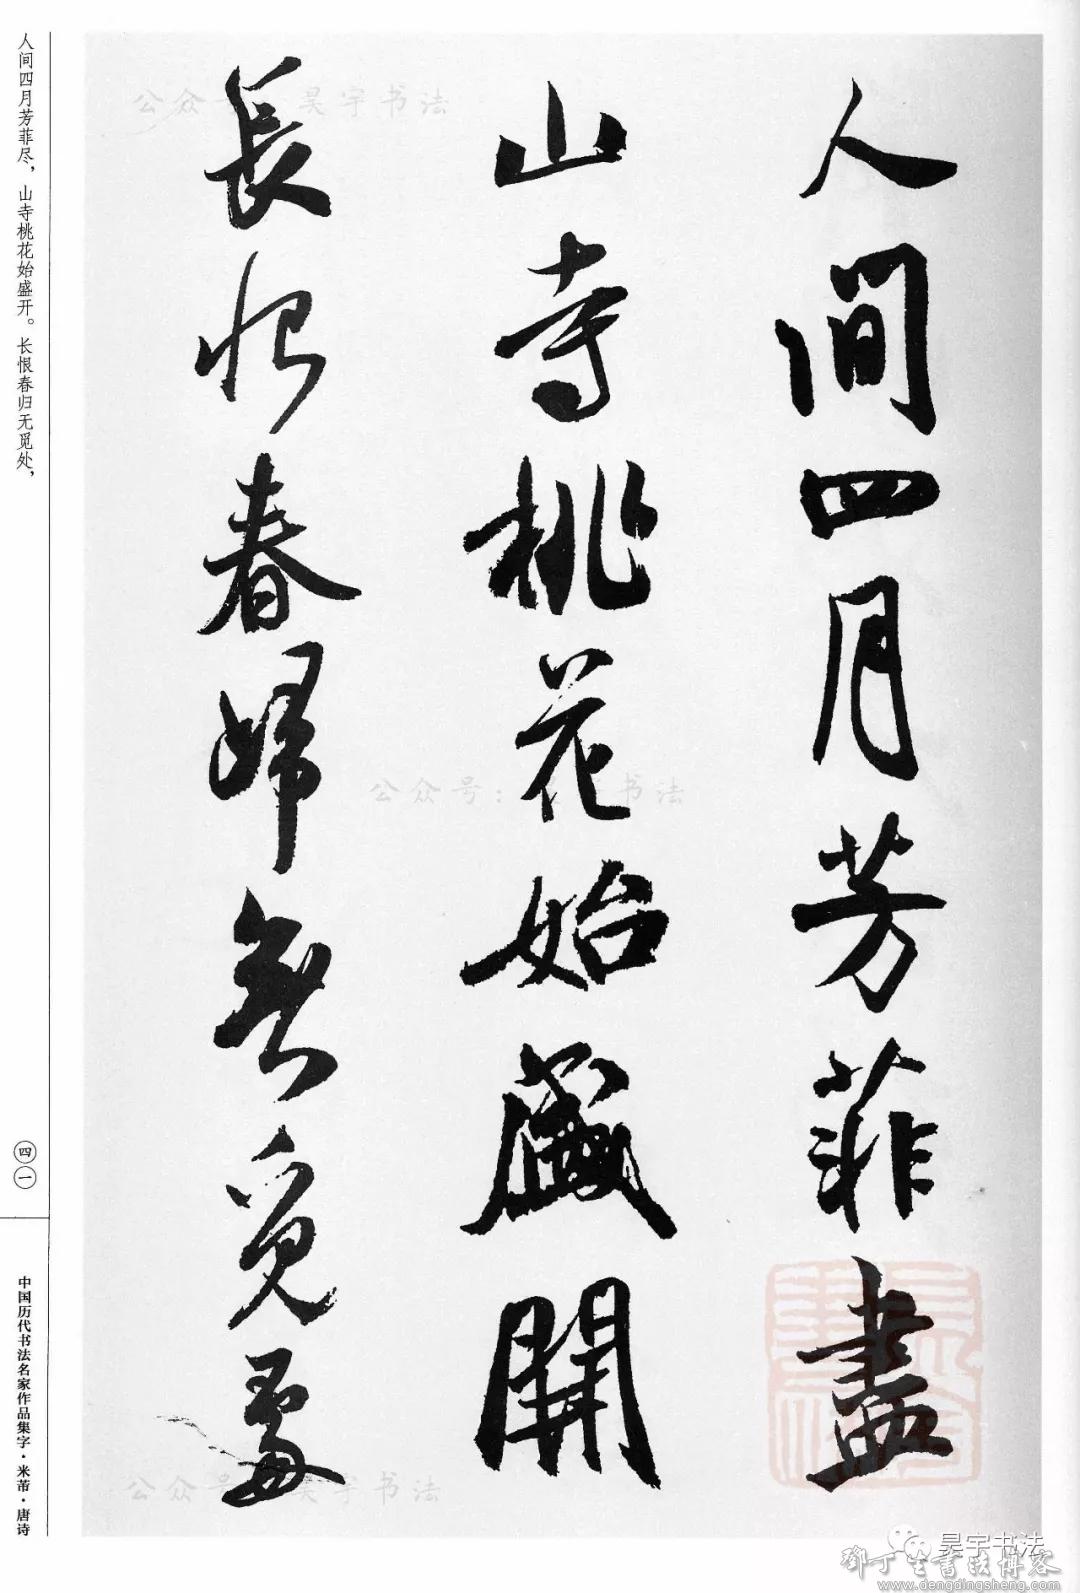 人間四月芳菲盡
山寺桃花始盛開
長恨春歸無覓處
人间四月芳菲尽，山寺桃花始盛开。长恨春归无觅处，
四一
中国历代书法名家作品集字·米芾·唐诗
公众号 昊宇书法
公众号： 书法
公众号 昊宇书法
昊宇书法
鄧丁生書法博客
www.dengdingsheng.com